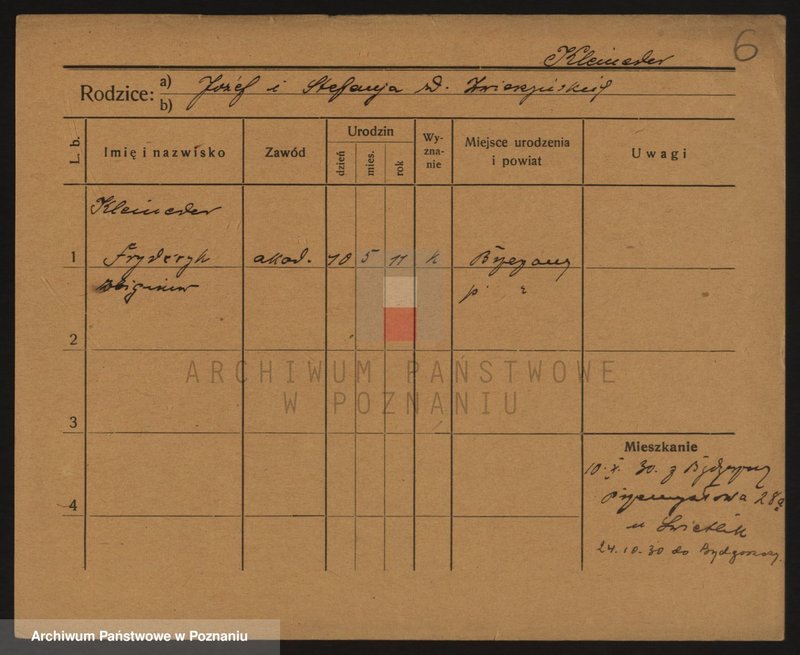 6
Kleineder
Rodzice: a) Józef i Stefanja z d. Zwierzyńskiej
b)
L. b.
Imię i nazwisko
Zawód
Urodzin
dzień
mies.
rok
Wy-
zna-
nie
Miejsce urodzenia
i powiat
Uwagi
Kleineder
1 Fryderyk akad. 10 5 11 k Brzezany
Zbigniew p. "
2
ARCHIWUM PAŃSTWOWE
W POZNANIU
3
Mieszkanie
10. X. 30. z Bydgoszczy
4 Przemysłowa 28a
u
24.10.30 do Bydgoszczy.
Archiwum Państwowe w Poznaniu